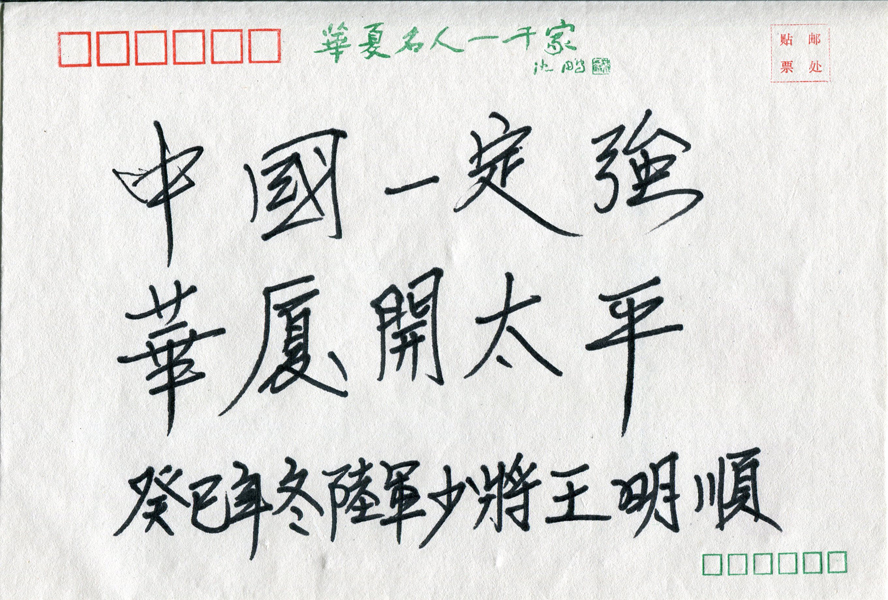 華夏名人一千家
沈鹏
贴 邮
票 处
中國一定強
華厦開太平
癸巳年冬陸軍少將王明順